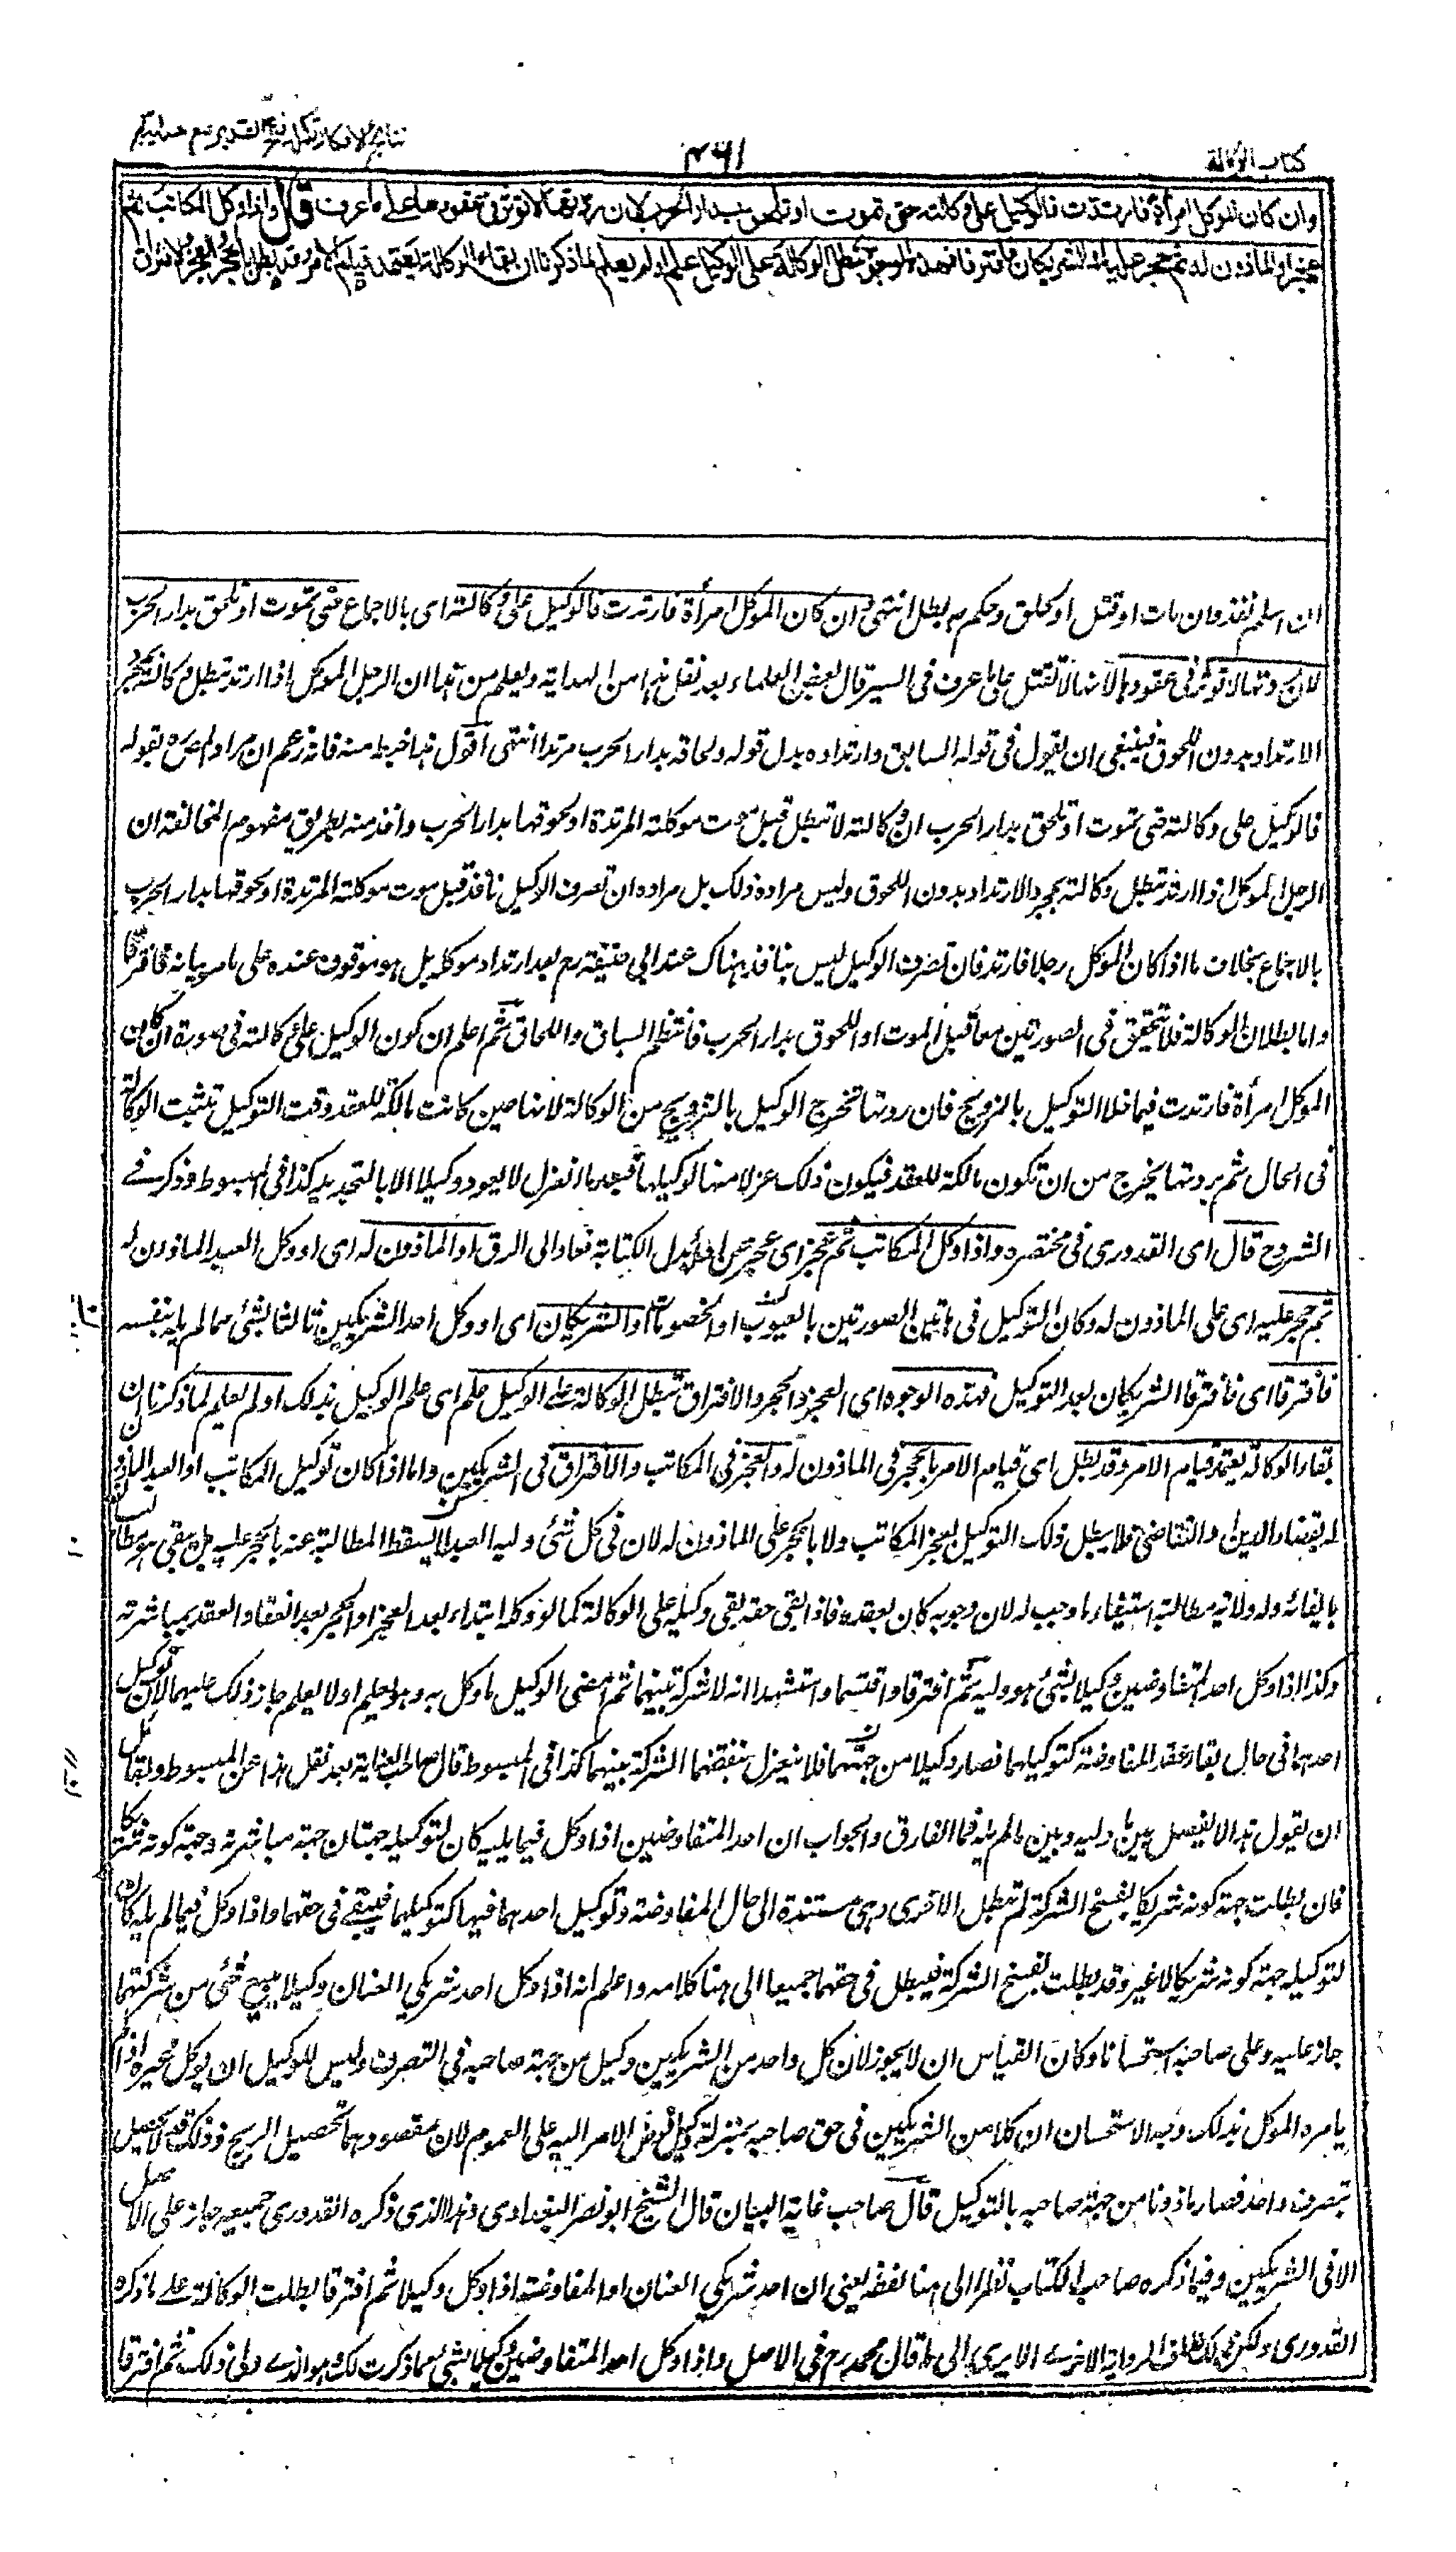 كتاب الوكالة
٤٦١
نتائج الافكار تكملة فتح القدير مع هداية
وان كان الموكل امرأة فارتدت فالوكيل على وكالته حتى تموت او تلحق بدار الحرب لان ردتها لا تؤثر فى عقودها على ما عرف قال واذا وكل المكاتب ثم
عجز او الماذون له ثم حجر عليه او الشريكان فافترقا فهذه الوجوه تبطل الوكالة على الوكيل علم او لم يعلم لما ذكرنا ان بقاء الوكالة يعتمد قيام الامر وقد بطل بالحجر والعجز والافتراق
ان اسلم نفذ وان مات او قتل او لحق وحكم به بطل انتهى وان كان الموكل امرأة فارتدت فالوكيل على وكالته اى بالاجماع حتى تموت او تلحق بدار الحرب
لان ردتها لا تؤثر فى عقودها لانها لا تقتل على ما عرف فى السير قال بعض العلماء بعد نقل هذا من الهداية ويعلم من هذا ان الرجل الموكل اذا ارتد تبطل وكالته بمجرد
الارتداد بدون اللحوق فينبغى ان يقول فى قوله السابق وارتداده بدل قوله ولحاقه بدار الحرب مرتدا انتهى اقول هذا خبط منه فانه زعم ان مراد المص رح بقوله
فالوكيل على وكالته حتى تموت او تلحق بدار الحرب ان وكالته لا تبطل قبل موت موكلته المرتدة او لحوقها بدار الحرب واخذ منه بطريق مفهوم المخالفة ان
الرجل الموكل اذا ارتد تبطل وكالته بمجرد الارتداد بدون اللحوق وليس مراده ذلك بل مراده ان تصرف الوكيل نافذ قبل موت موكلته المرتدة او لحوقها بدار الحرب
بالاجماع بخلاف ما اذا كان الموكل رجلا فارتد فان تصرف الوكيل ليس بنافذ هناك عند ابى حنيفة رح بعد ارتداد موكله بل هو موقوف عنده على ما مر بيانه فافترقا
واما بطلان الوكالة فلا يتحقق فى الصورتين معا قبل الموت او اللحوق بدار الحرب فانتظم السباق واللحاق ثم اعلم ان كون الوكيل على وكالته فى صورة ان كان
الموكل امرأة فارتدت فيما خلا التوكيل بالتزويج فان ردتها تخرج الوكيل بالتزويج من الوكالة لانها حين كانت مالكة للعقد وقت التوكيل تثبت الوكالة
فى الحال ثم بردتها يخرج من ان تكون مالكة للعقد فيكون ذلك عزلا منها لوكيلها فبعد ما انعزل لا يعود وكيلا الا بالتجديد كذا فى المبسوط وذكر فى
الشروح قال اى القدورى فى مختصره واذا وكل المكاتب ثم عجز اى عجز عن اداء بدل الكتابة فعاد الى الرق او الماذون له اى او وكل العبد الماذون له
ثم حجر عليه اى على الماذون له وكان التوكيل فى هاتين الصورتين بالعيوب او الخصومات او الشريكان اى او وكل احد الشريكين ثالثا بشئ مما لم يله بنفسه
فافترقا اى فافترقا الشريكان بعد التوكيل فهذه الوجوه اى العجز والحجر والافتراق تبطل الوكالة على الوكيل علم اى علم الوكيل بذلك او لم يعلم لما ذكرنا ان
بقاء الوكالة يعتمد قيام الامر وقد بطل اى قيام الامر بالحجر فى الماذون له والعجز فى المكاتب والافتراق فى الشريكين واما اذا كان توكيل المكاتب او العبد الماذون
له بقضاء الدين او التقاضى فلا يبطل ذلك التوكيل بعجز المكاتب ولا بالحجر على الماذون له لان فى كل شئ وليه العبد لا يسقط المطالبة عنه بالحجر عليه بل يبقى هو مطالبا
بايفائه وله ولاية مطالبة استيفاء ما وجب له لان وجوبه كان بعقده فاذا بقى حقه بقى وكيله على الوكالة كما لو وكله ابتداء بعد العجز او الحجر بعد انعقاد العقد بمباشرته
وكذا اذا وكل احد المتفاوضين وكيلا بشئ هو وليه ثم افترقا واقتسما واستشهدا انه لا شركة بينهما ثم امضى الوكيل ما وكل به وهو يعلم او لا يعلم جاز ذلك عليهما لان توكيل
احدهما فى حال بقاء عقد المفاوضة كتوكيلهما فصار وكيلا من جهتهما فلا ينعزل بنقضهما الشركة بينهما كذا فى المبسوط قال صاحب العناية بعد نقل هذا عن المبسوط ولقائل
ان يقول هذا لا يفصل بين ما وليه وبين ما لم يله فما الفارق والجواب ان احد المتفاوضين اذا وكل فيما يليه كان لتوكيله جهتان جهة مباشرته وجهة كونه شريكا
فان بطلت جهة كونه شريكا بفسخ الشركة لم تبطل الاخرى وهى مستندة الى حال المفاوضة وتوكيل احدهما فيها كتوكيلهما فيبقى فى حقهما واذا وكل فيما لم يله كان
لتوكيله جهة كونه شريكا لا غير وقد بطلت بفسخ الشركة فيبطل فى حقهما جميعا الى هنا كلامه واعلم انه اذا وكل احد شريكى العنان وكيلا ببيع شئ من شركتهما
جاز عليه وعلى صاحبه استحسانا وكان القياس ان لا يجوز لان كل واحد من الشريكين وكيل من جهة صاحبه فى التصرف وليس للوكيل ان يوكل غيره اذا لم
يامره الموكل بذلك وجه الاستحسان ان كلا من الشريكين فى حق صاحبه بمنزلة وكيل فوض الامر اليه على العموم لان مقصودهما تحصيل الربح وذلك قد لا يحصل
بتصرف واحد فصار ماذونا من جهة صاحبه بالتوكيل قال صاحب غاية البيان قال الشيخ ابو نصر البغدادى وهذا الذى ذكره القدورى جميعه جاز على الاصل
الا فى الشريكين وفيما ذكره صاحب الكتاب نظر الى هنا لفظه يعنى ان احد شريكى العنان او المفاوضة اذا وكل وكيلا ثم افترقا بطلت الوكالة على ما ذكره
القدورى ولكن ذلك خلاف الرواية الاخرى الا يرى الى ما قال محمد رح فى الاصل واذا وكل احد المتفاوضين وكيلا بشئ مما ذكرت لك وهو الذى ولى ذلك ثم افترقا